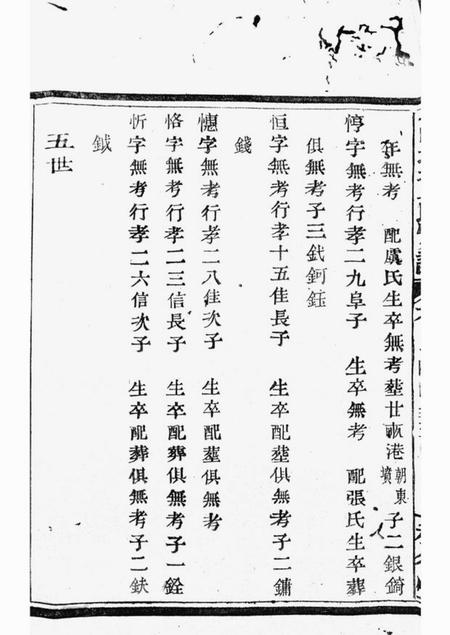 年無考 配虞氏生卒無考塟廿畝港朝東墳子二銀錡
惇字無考行孝二九阜子 生卒無考 配張氏生卒葬
俱無考子三鈛鈳鈺
恒字無考行孝十五佳長子 生卒配塟俱無考子二鏞
錢
憓字無考行孝二八佳次子 生卒配塟俱無考
恪字無考行孝二三信長子 生卒配葬俱無考子一銓
忻字無考行孝二六信次子 生卒配葬俱無考子二鈇
鉞
五世